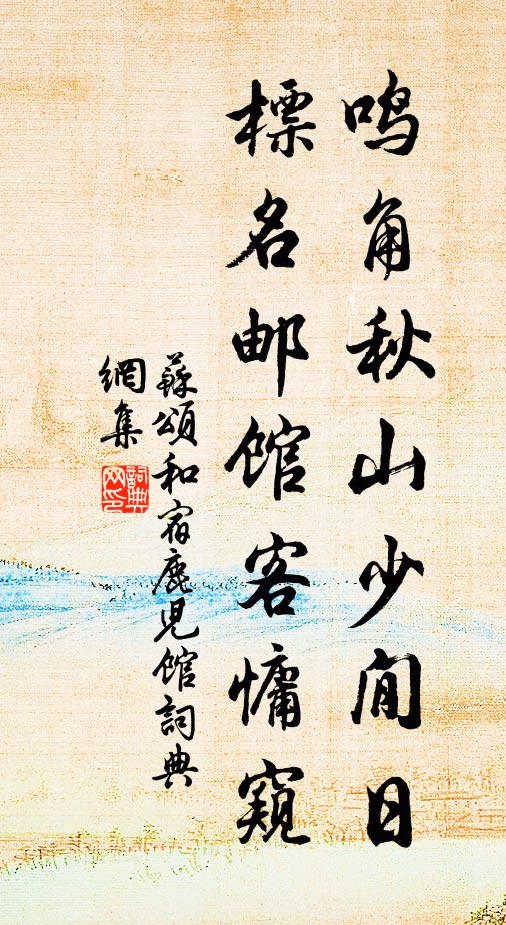 鸣角秋山少闲日
标名邮馆客慵窥
蘇頌和宿鹿兒馆詞典
網集
詞典网印